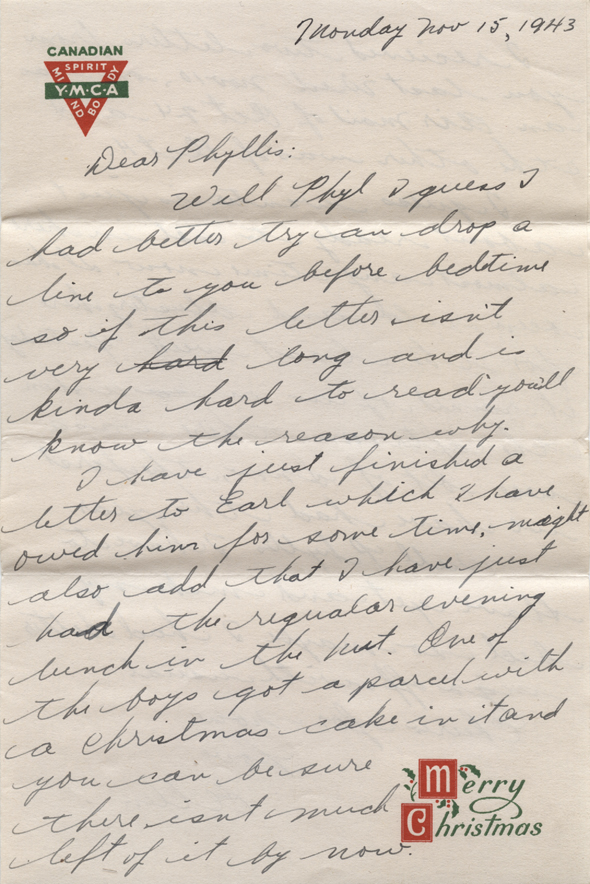 Monday Nov 15, 1943
CANADIAN
SPIRIT
MIND
Y·M·C·A
BODY
Dear Phyllis:
Well Phyl I guess I
had better try an drop a
line to you before bedtime
so if this letter isn't
very hard long and is
kinda hard to read you'll
know the reason why.
I have just finished a
letter to Earl which I have
owed him for some time, might
also add that I have just
had the regualar evening
lunch in the hut. One of
the boys got a parcel with
a Christmas cake in it and
you can be sure
there isnt much
left of it by now.
Merry
Christmas